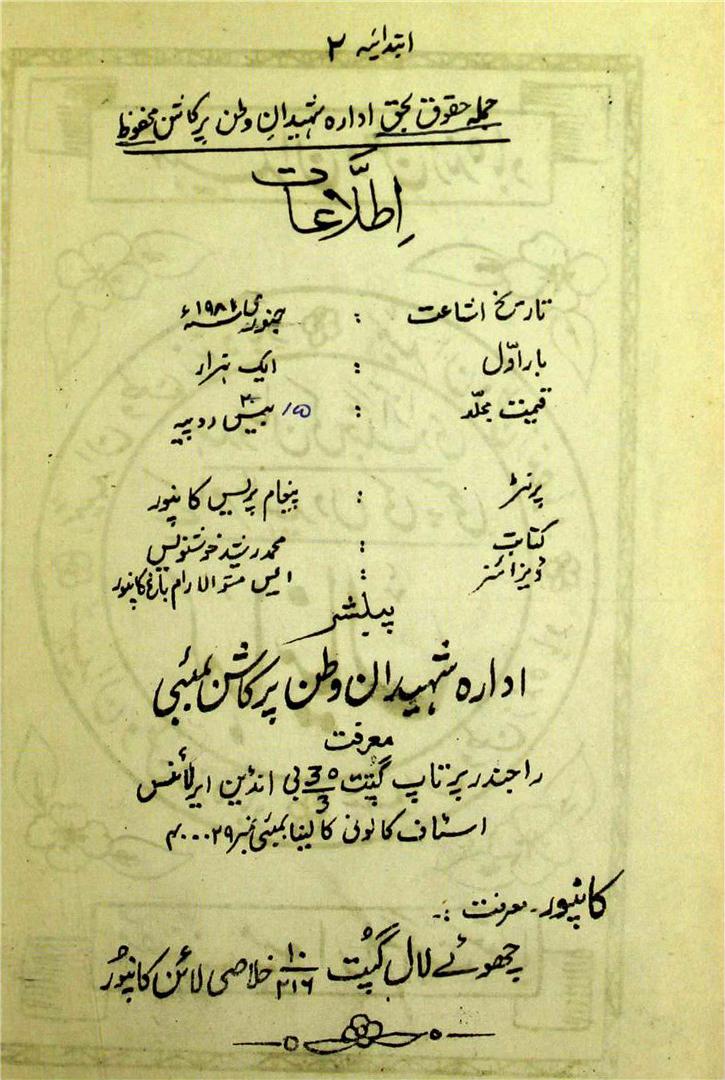 ابتدائیہ ۲
جملہ حقوق بحق ادارہ شہیدانِ وطن پرکاشن محفوظ
اِطلّاعات
تاریخ اشاعت : جنوری سنہ ۱۹۸۱ء
بار اوّل : ایک ہزار
قیمت مجلّد : بیس ۲۰ روپیہ
پرنٹر : پیغام پریس کانپور
کتابت : محمد رشید خوشنویس
ڈیزائنر : ایس متوالا رام باغ کانپور
پبلیشر
ادارہ شہیدان وطن پرکاشن بمبئی
معرفت
راجندر پرتاپ گپت 30/3 بی انڈین ایرلائنس
اسٹاف کالونی کالینا بمبئی نمبر ۴۰۰۰۲۹
کانپور۔ معرفت :۔
چھوٹے لال گپت ۱۰/۲۱۶ خلاصی لائن کانپور